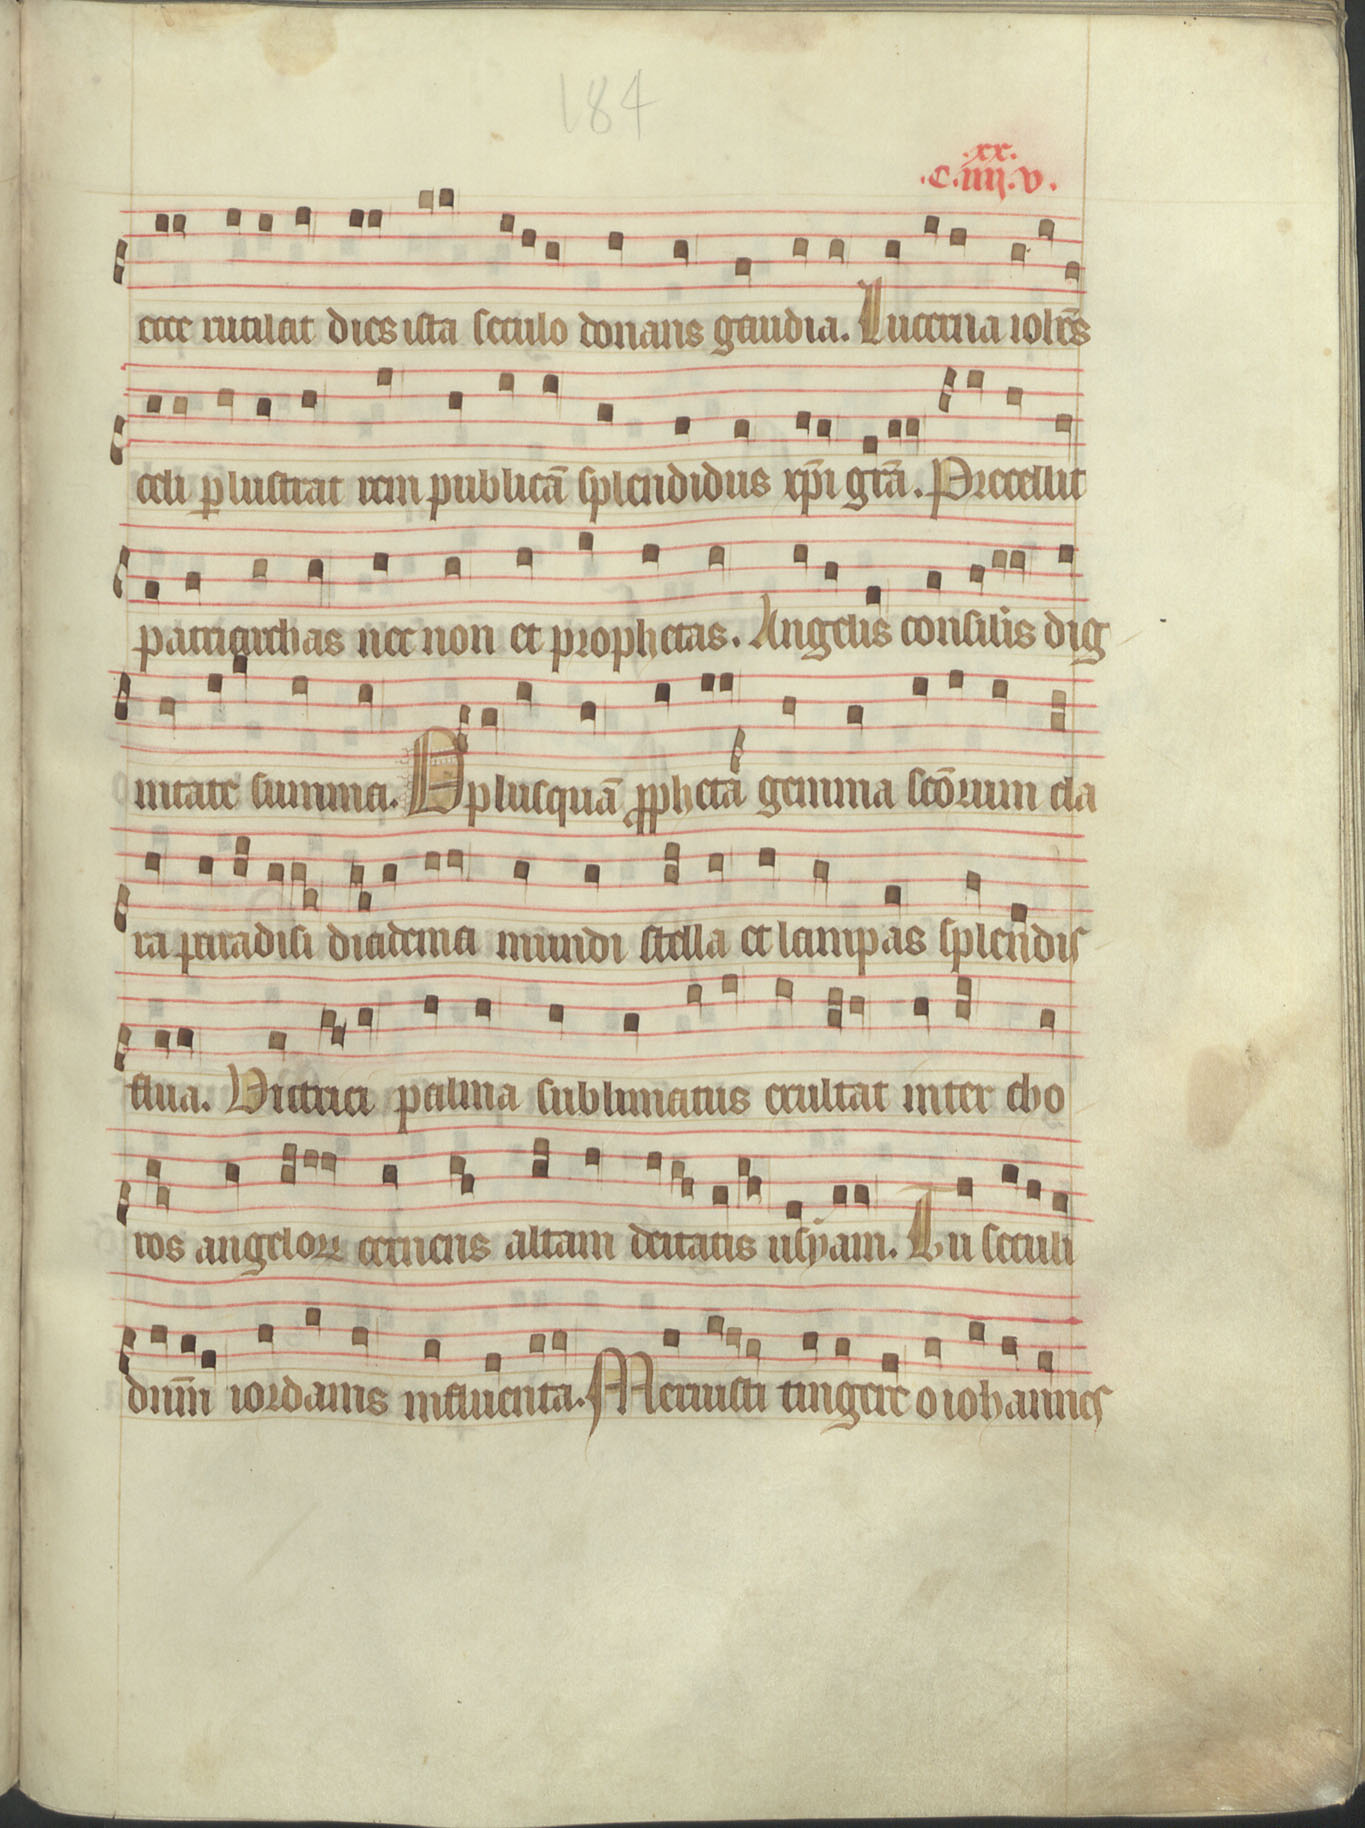 184
.xx.
.c.iiij.v.
ecce rutilat dies ista seculo donans gaudia. Lucerna ioh̄es
celi ꝑlustrat rem publicā splendidus xp̄i gr̄a. Precellit
patriarchas nec non et prophetas. Angelis consilis dig
nitate summa. O plusquā ꝓpheta gemma sc̄orum cla
ra paradisi diadema mundi stella et lampas splendis
flua. Victrici palma sublimatus exultat inter cho
ros angeloꝝ cernens altam deitatis usyam. Tu seculi
dn̄m iordanis influenta. Meruisti tingere o iohannes